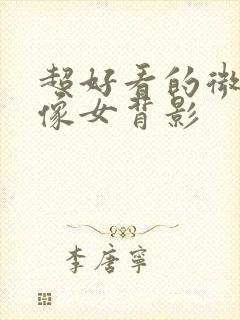 超好看的微
像女背影
李唐宁